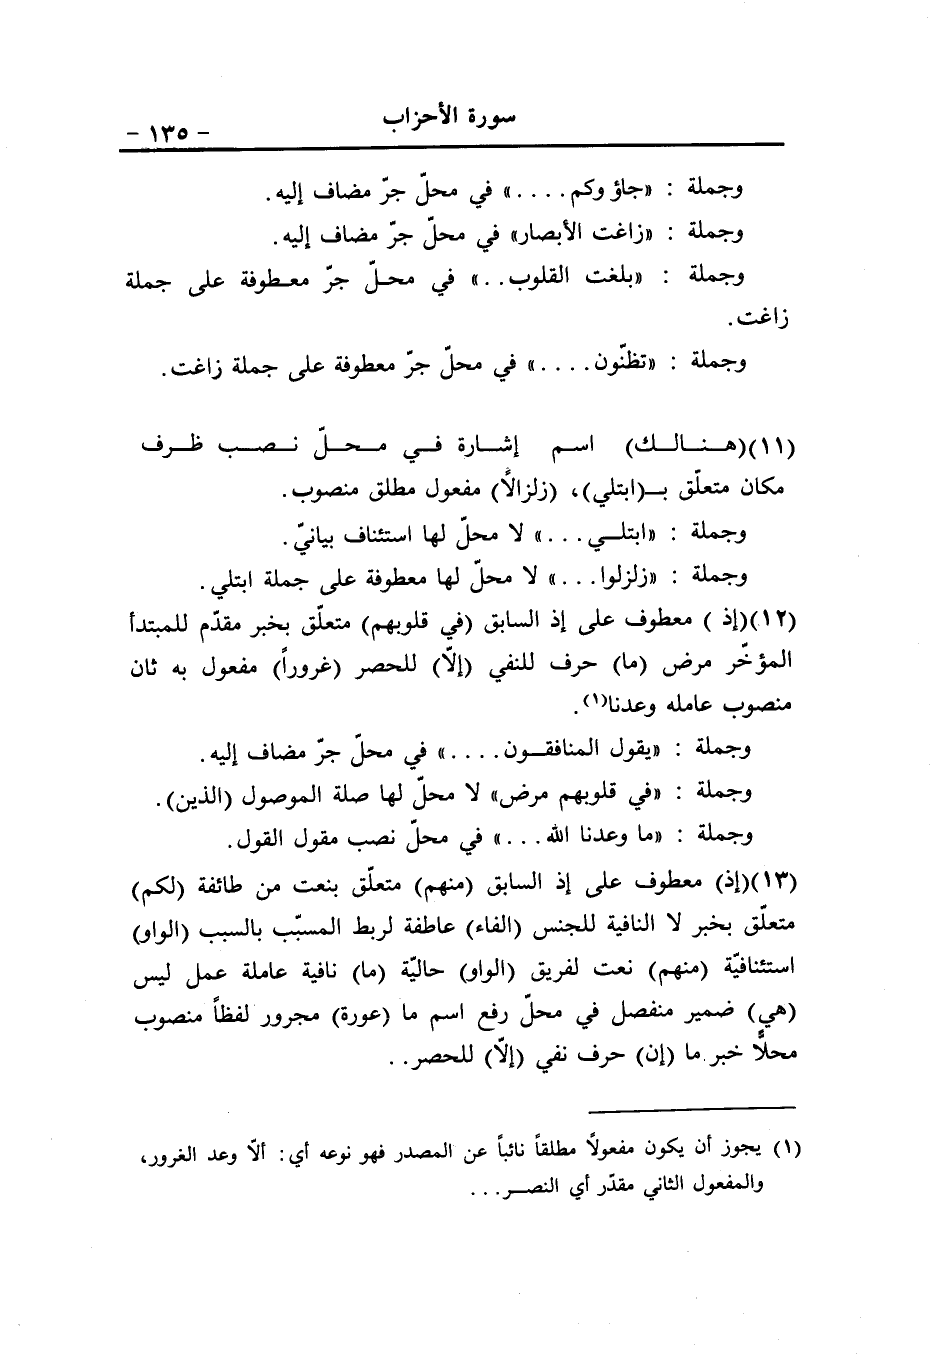 سورة الأحزاب
- ١٣٥ -
وجملة : «جاؤ وكم . . . .» في محلّ جرّ مضاف إليه.
وجملة : «زاغت الأبصار» في محلّ جرّ مضاف إليه.
وجملة : «بلغت القلوب . .» في محـلّ جرّ معـطوفة على جملة
زاغت.
وجملة : «تظنّون . . . .» في محلّ جرّ معطوفة على جملة زاغت.
(١١)(هـنـالـك) اسـم إشـارة فـي مـحـلّ نـصـب ظـرف
مكان متعلّق بـ(ابتلي)، (زلزالاً) مفعول مطلق منصوب.
وجملة : «ابتلـي . . .» لا محلّ لها استئناف بيانيّ.
وجملة : «زلزلوا . . .» لا محلّ لها معطوفة على جملة ابتلي.
(١٢)(إذ ) معطوف على إذ السابق (في قلوبهم) متعلّق بخبر مقدّم للمبتدأ
المؤخّر مرض (ما) حرف للنفي (إلّا) للحصر (غروراً) مفعول به ثان
منصوب عامله وعدنا(١).
وجملة : «يقول المنافقـون . . . .» في محلّ جرّ مضاف إليه.
وجملة : «في قلوبهم مرض» لا محلّ لها صلة الموصول (الذين).
وجملة : «ما وعدنا الله . . .» في محلّ نصب مقول القول.
(١٣)(إذ) معطوف على إذ السابق (منهم) متعلّق بنعت من طائفة (لكم)
متعلّق بخبر لا النافية للجنس (الفاء) عاطفة لربط المسبّب بالسبب (الواو)
استئنافيّة (منهم) نعت لفريق (الواو) حاليّة (ما) نافية عاملة عمل ليس
(هي) ضمير منفصل في محلّ رفع اسم ما (عورة) مجرور لفظاً منصوب
محلاًّ خبر ما (إن) حرف نفي (إلّا) للحصر . .
(١) يجوز أن يكون مفعولاً مطلقاً نائباً عن المصدر فهو نوعه أي: ألّا وعد الغرور،
والمفعول الثاني مقدّر أي النصـر . . .